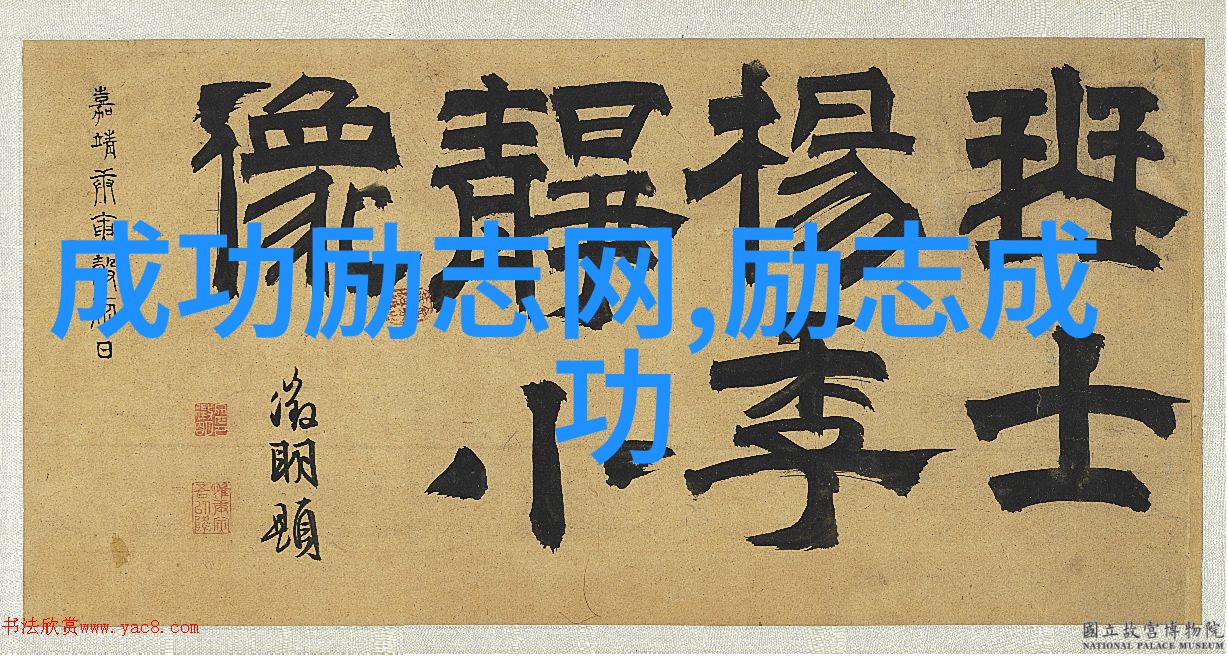 成功励志网,励志成
功
班士
楊李
小
像
徵明題
嘉靖庚寅穀雨日
书法欣赏www.yac8.com
國立故宮博物院
NATIONAL PALACE MUSEUM